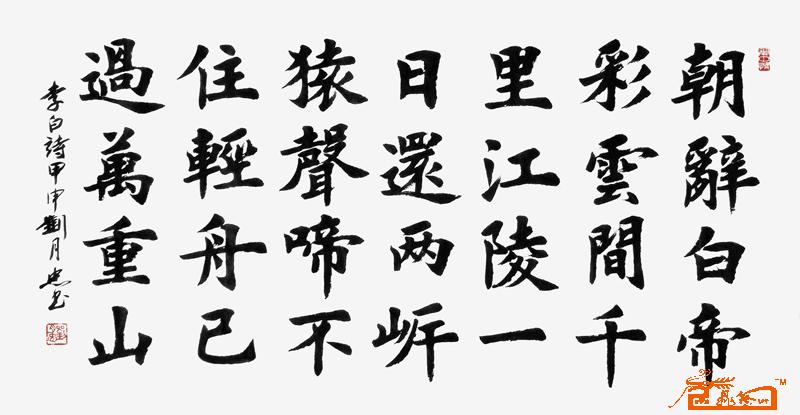 朝辭白帝
彩雲間千
里江陵一
日還两岍
猿聲啼不
住輕舟已
過萬重山
李白詩甲申劉月忠书